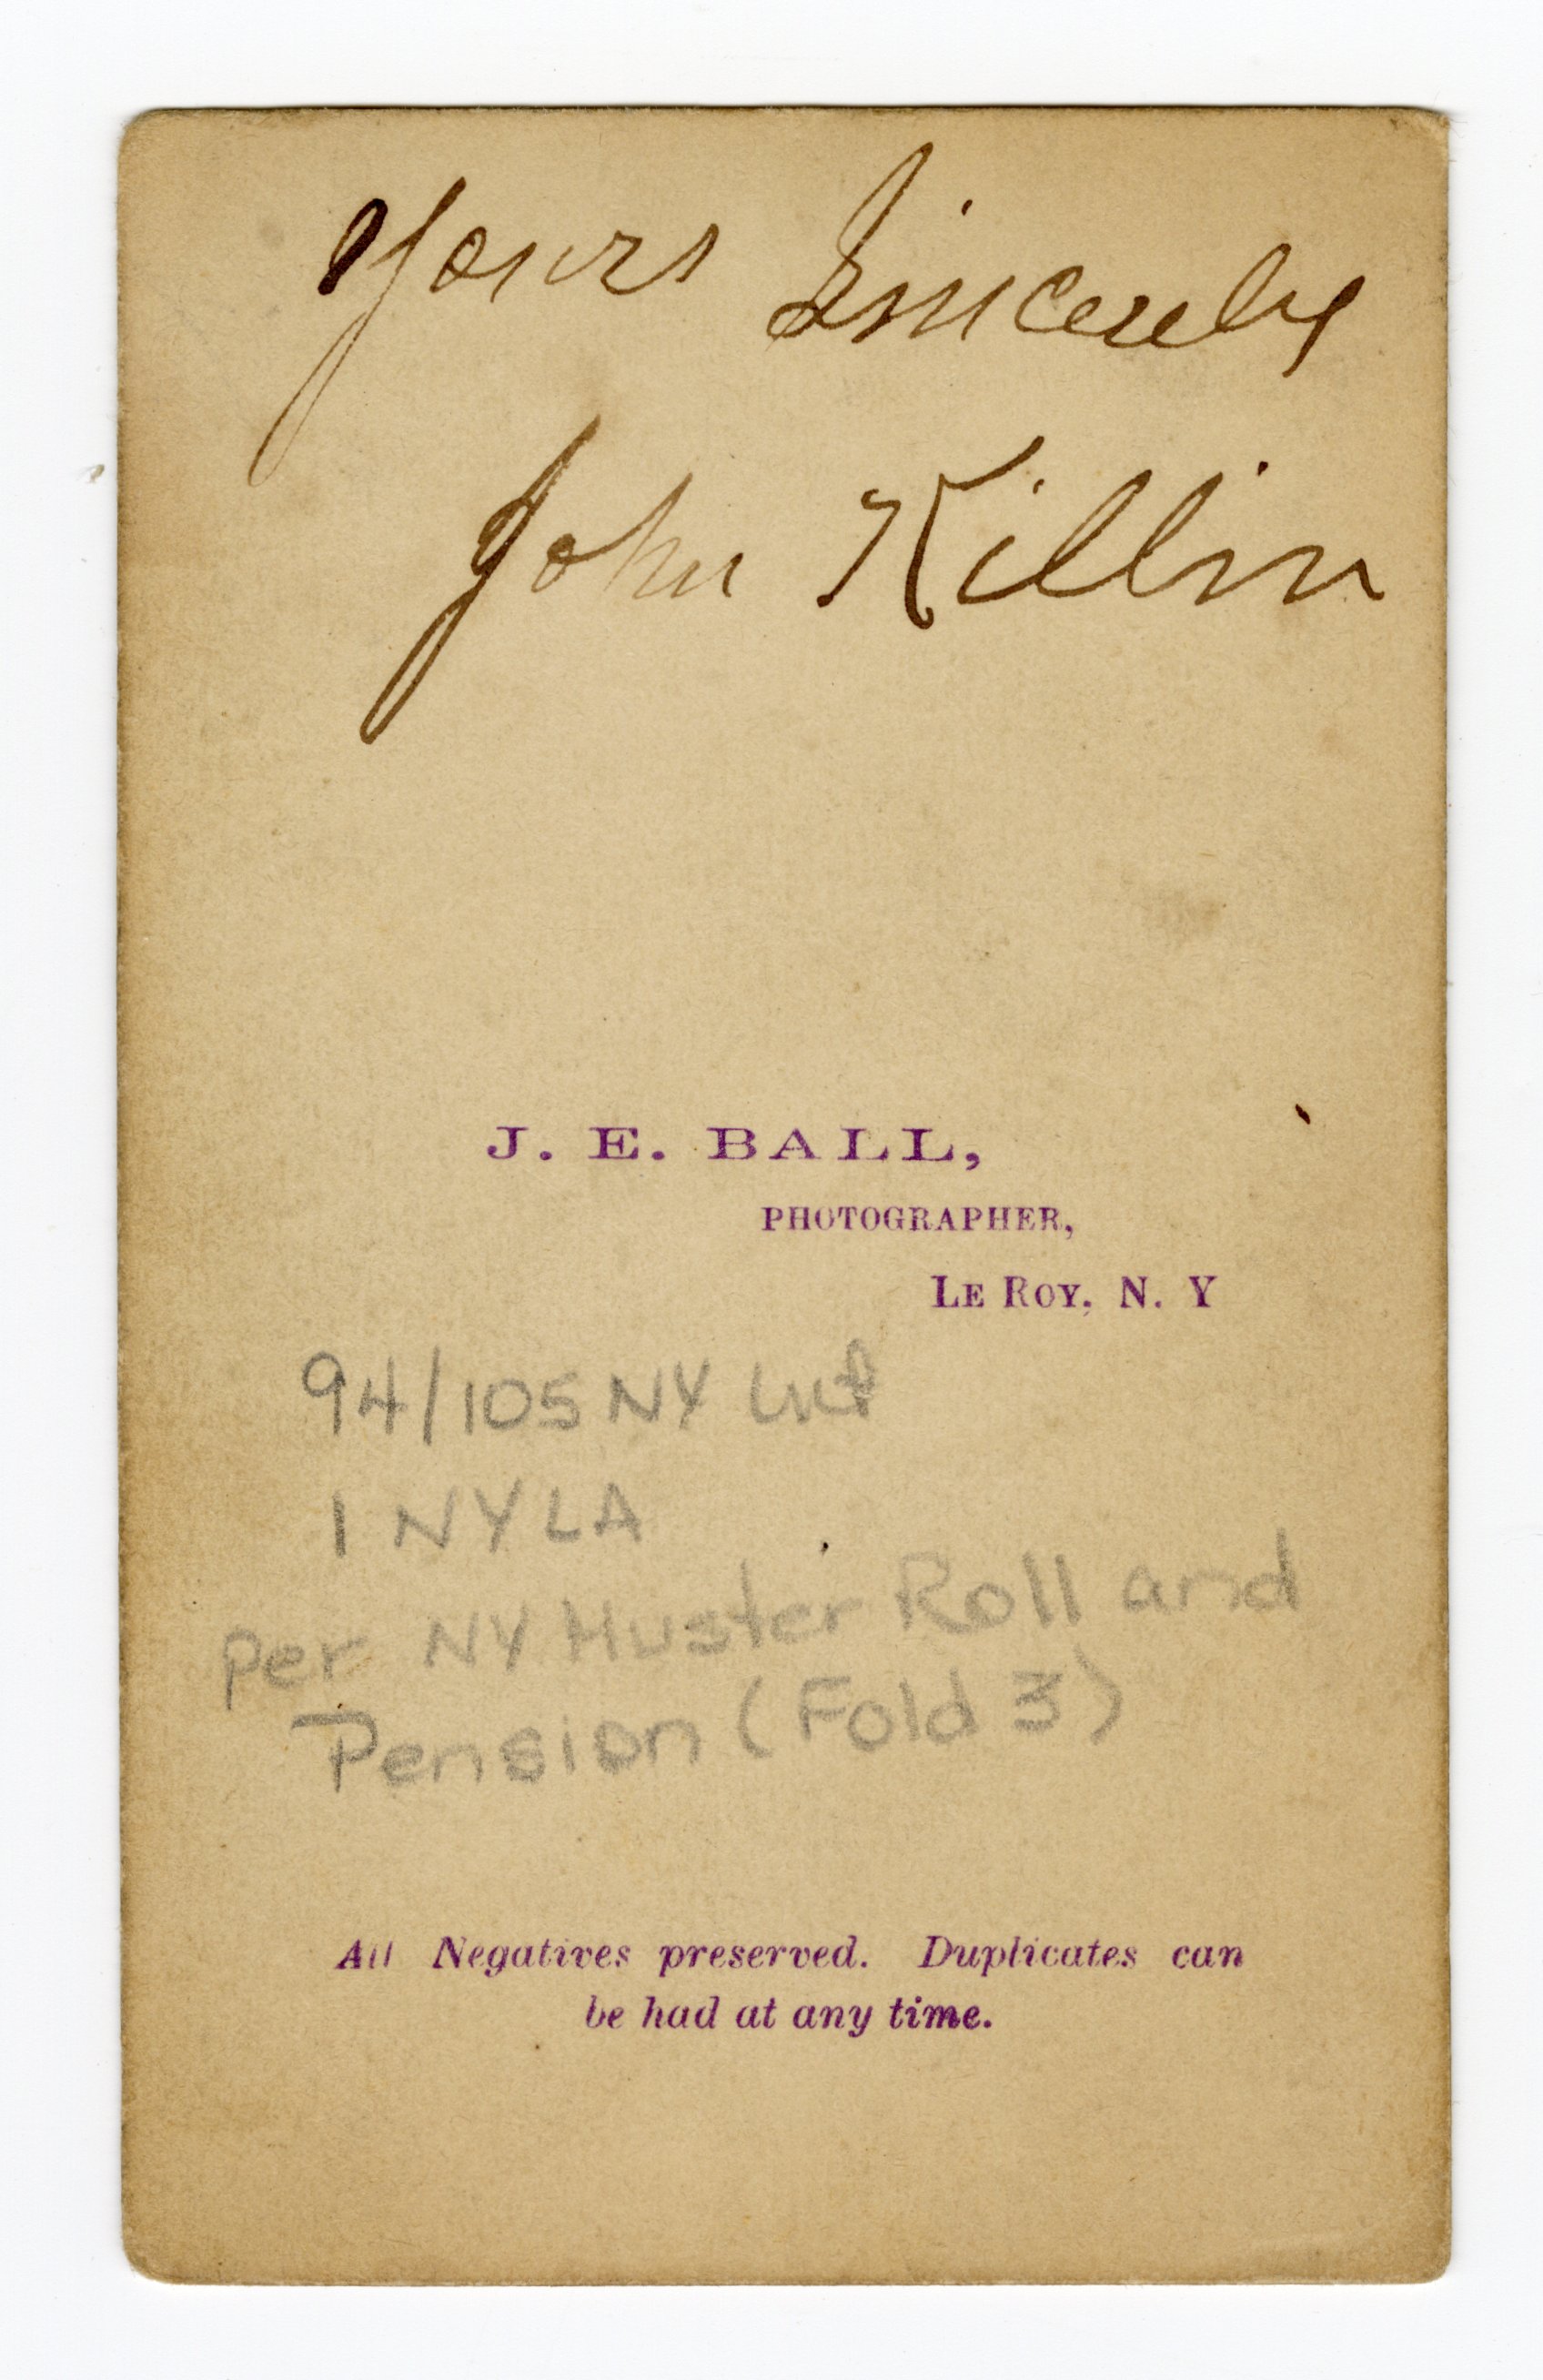 Yours Sincerely
John Killin
J. E. BALL,
PHOTOGRAPHER,
LE ROY, N. Y
94/105 NY Inf
1 NYLA
per NY Muster Roll and
Pension (Fold 3)
All Negatives preserved. Duplicates can
be had at any time.